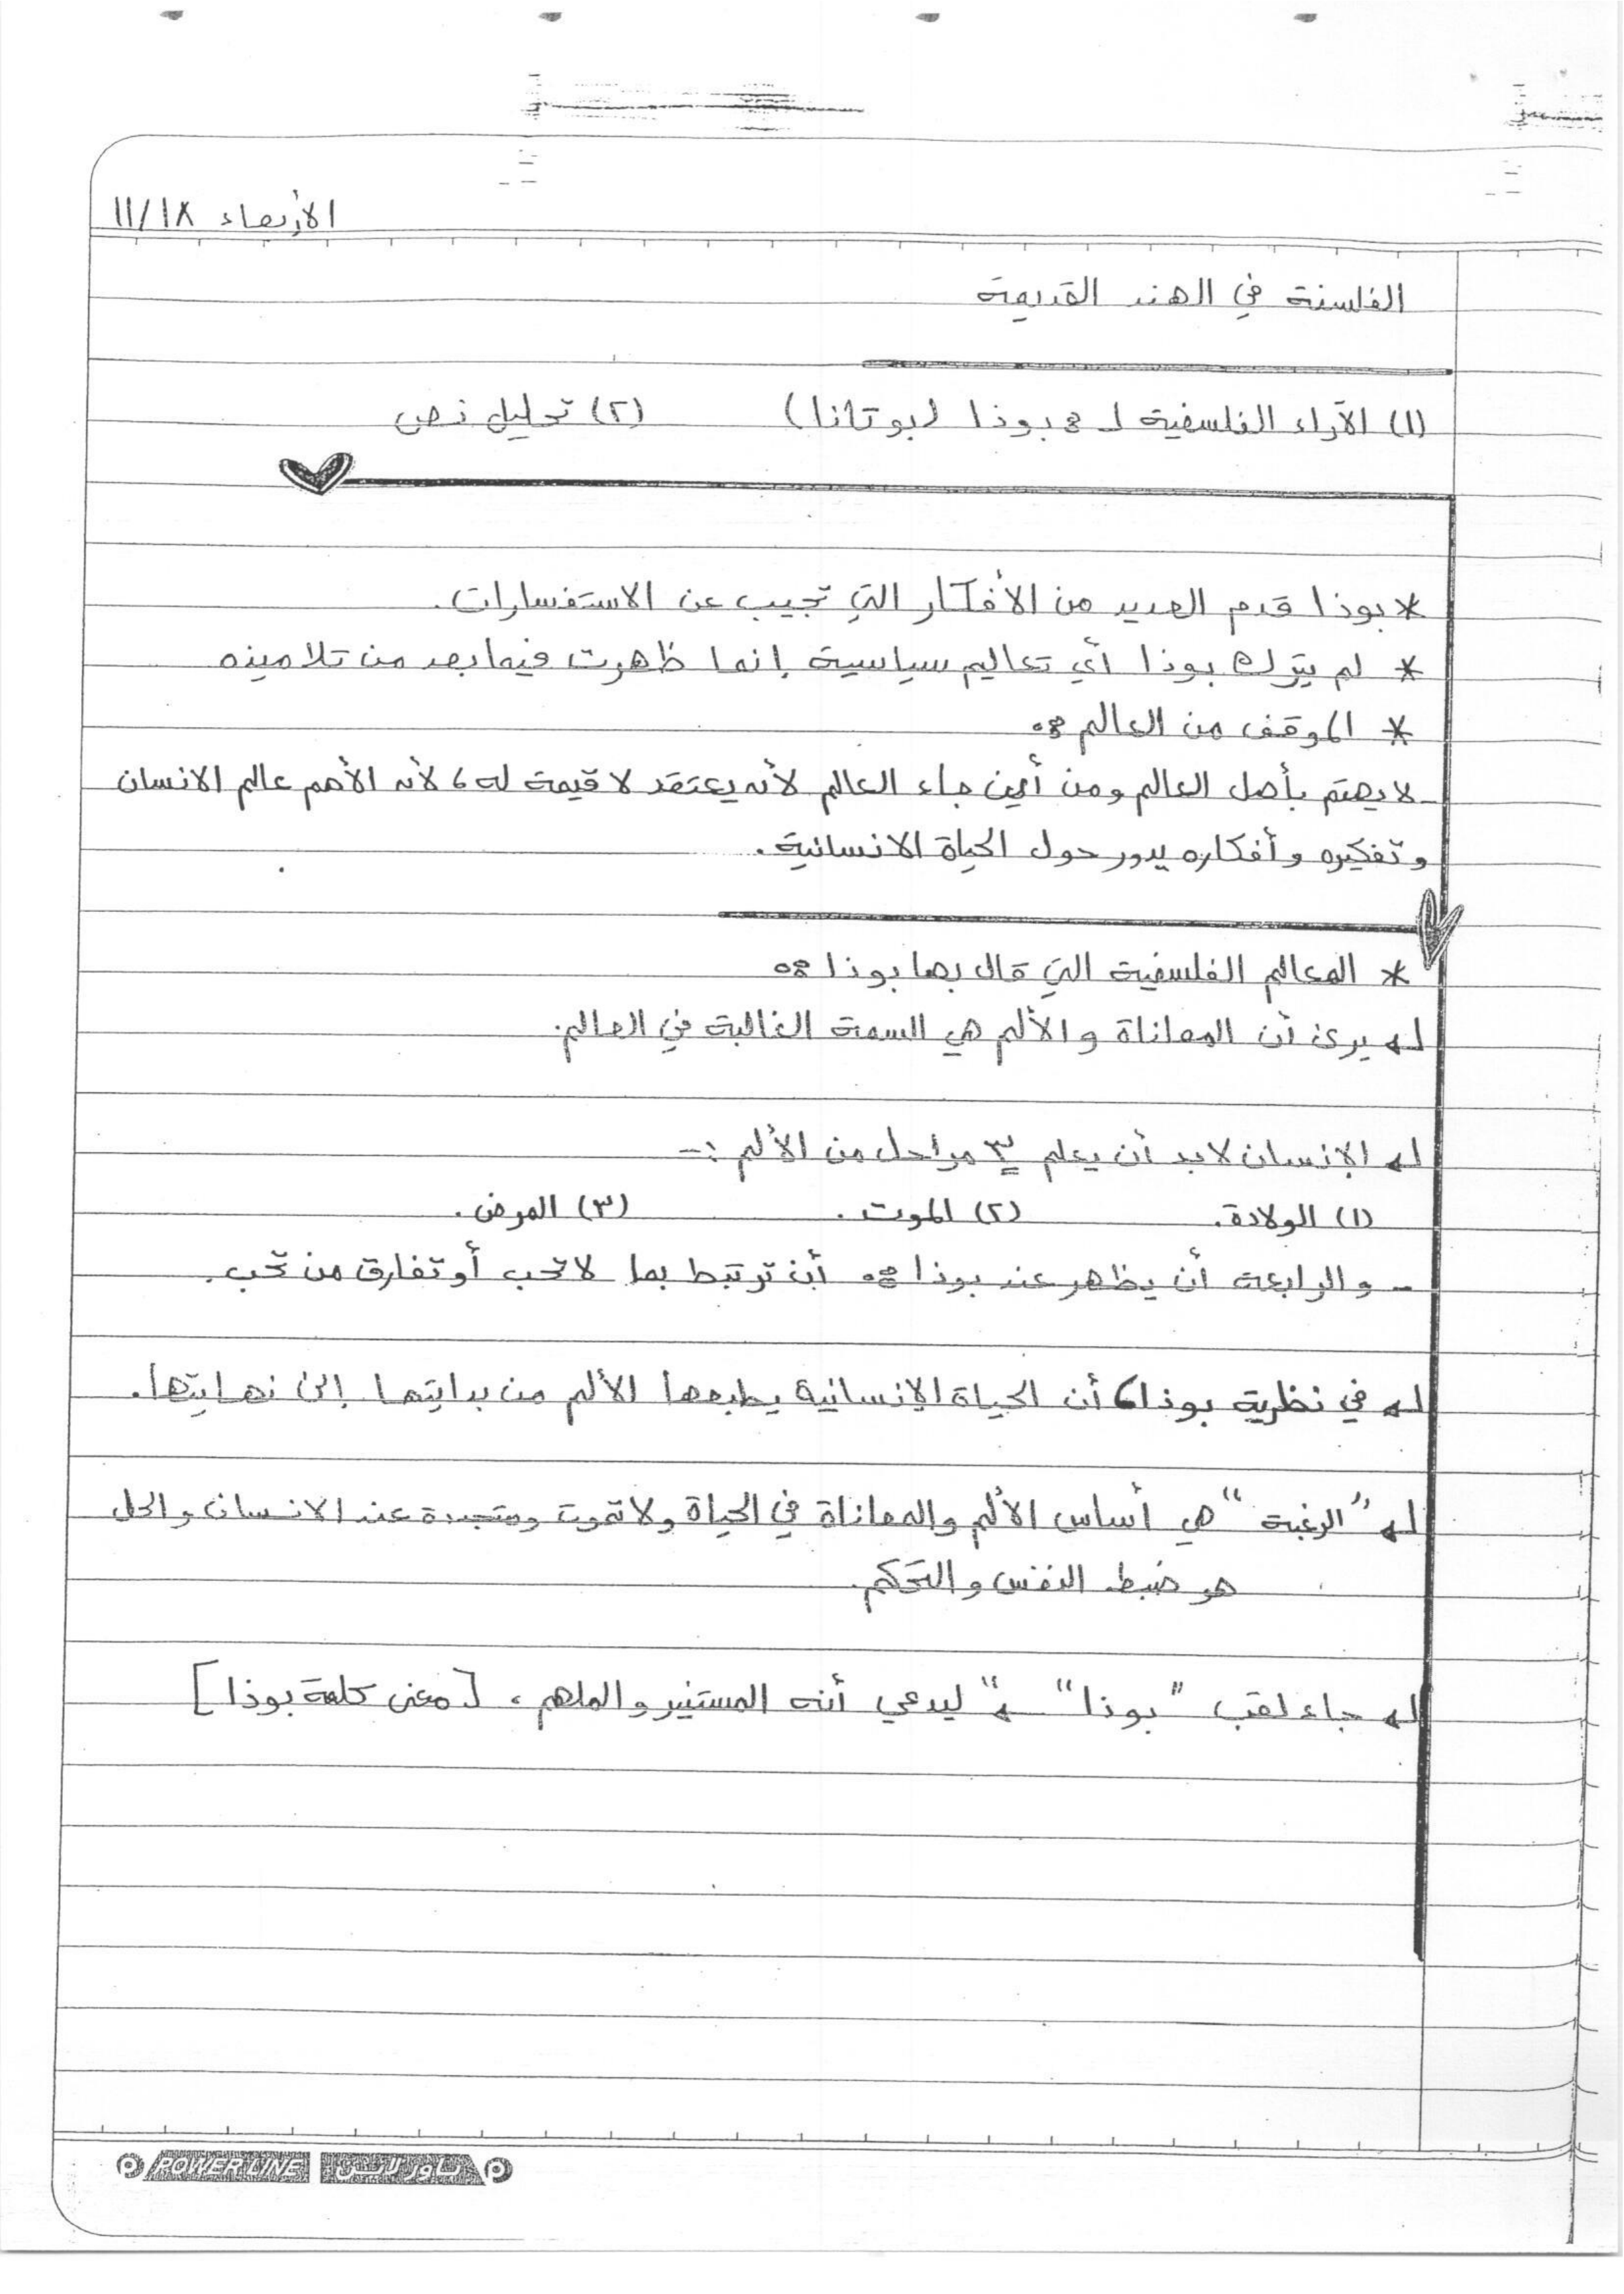 الأربعاء ١١/١٨
الفلسفة في الهند القديمة
(١) الآراء الفلسفية لـ : بوذا (بوتانا) (٢) تحليل نص
* بوذا قدم العديد من الأفكار التي تجيب عن الاستفسارات.
* لم يترك بوذا أي تعاليم سياسية إنما ظهرت فيما بعد من تلاميذه
* الموقف من العالم :.
- لا يهتم بأصل العالم ومن أين جاء العالم لأنه يعتقد لا قيمة له، لأنه الأهم عالم الانسان
وتفكيره وأفكاره يدور حول الحياة الانسانية.
* المعالم الفلسفية التي قال بها بوذا :.
↵ يرى أن المعاناة والألم هي السمة الغالبة في العالم.
↵ الإنسان لابد أن يعلم ٣ مراحل من الألم :-
(١) الولادة. (٢) الموت. (٣) المرض.
- والرابعة أن يظهر عند بوذا :. أن ترتبط بما لا تحب أو تفارق من تحب.
↵ في نظرية بوذا، أن الحياة الإنسانية يطبعها الألم من بدايتها إلى نهايتها.
↵ "الرغبة" هي أساس الألم والمعاناة في الحياة ولا تموت ومتجددة عند الانسان والحل
هو ضبط النفس والتحكم.
↵ جاء لقب "بوذا" ↵ ليدعي أنه المستنير والملهم، [معنى كلمة بوذا]
POWER LINE باور لايـن